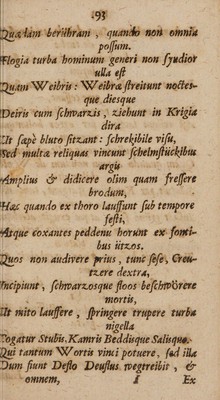 93
Quædam beriibram, quando non omnia
possum.
Flogia turba hominum generi non fyudior
ulla est
Quam Weibris: Weibræ streitunt noctes-
que diesque
Deiris cum schwarzis, ziehunt in Krigia
dira
Ut sæpè bluto sitzant: schrekibile visu,
Sed multæ reliquas vincunt schelmstückibus
argis
Amplius & didicere olim quam fressere
brodum,
Hæc quando ex thoro lauffunt sub tempore
festi,
Atque coxantes peddenu horunt ex fonti-
bus iitzos.
Quos non audivere prius, tunc sese, Creu-
tzere dextra,
Incipiunt, schwarzosque floos beschwörere
mortis,
Ut mito lauffere, springere trupere turba
nigella
Cogatur Stubis, Kamris Beddisque Salisque.
Qui tantum Wortis vinci potuere, sed illa
Dum fiunt Desto Deustus wegtreibit, &
omnem, Ex